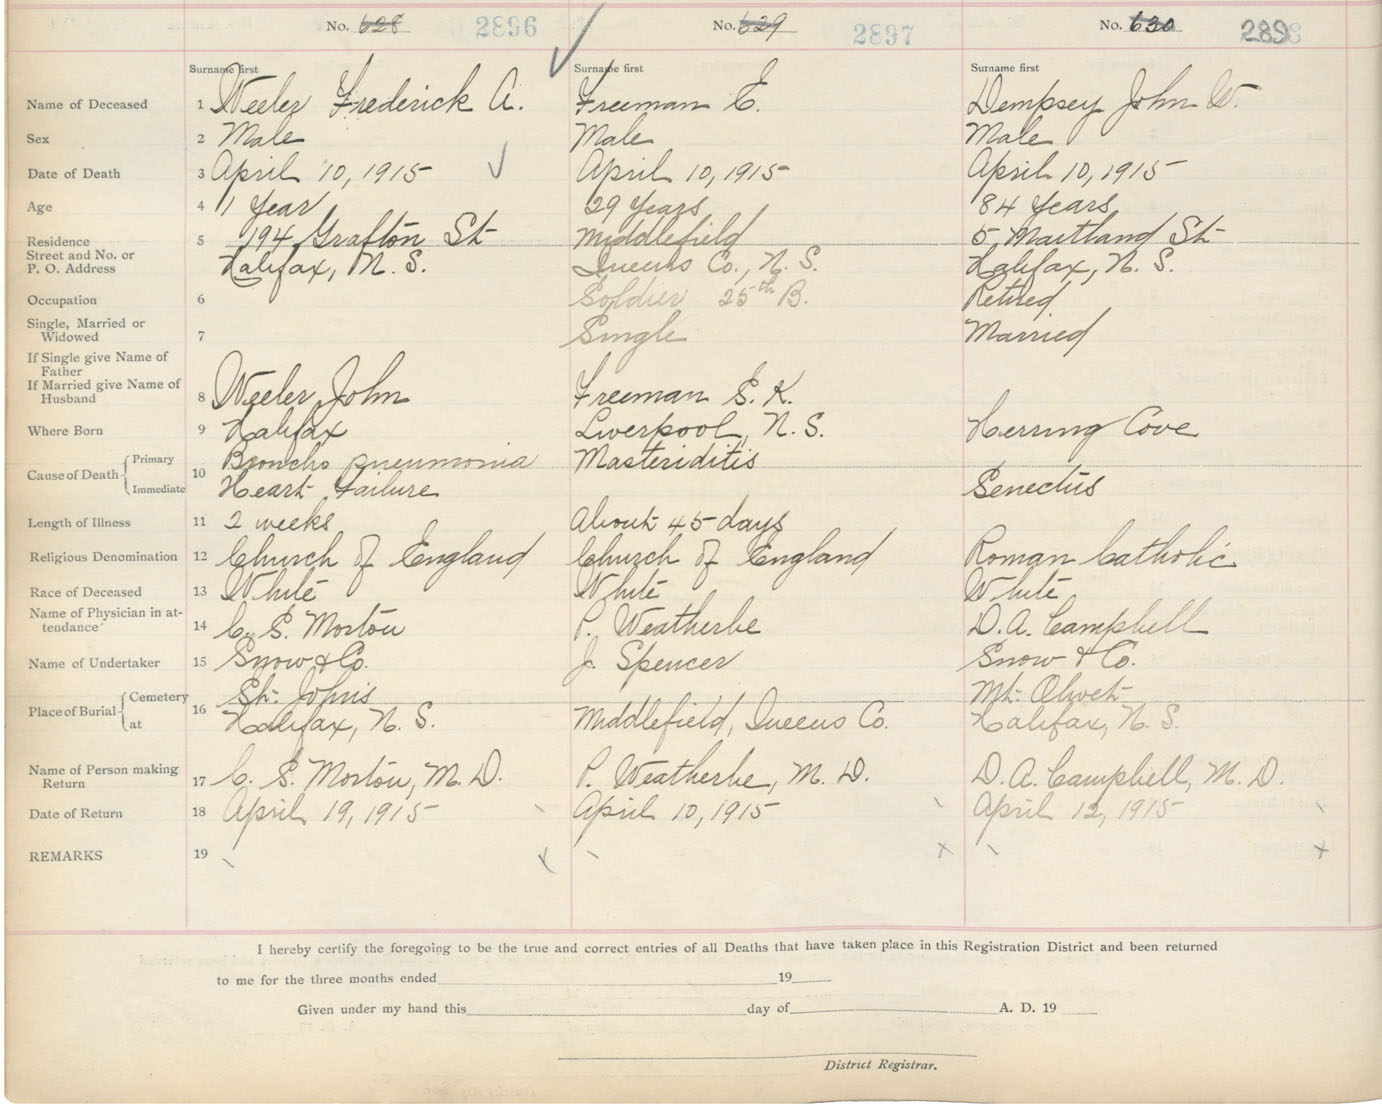 No. 628 2896 No. 629 2897 No. 630 2898
Surname first Surname first Surname first
Name of Deceased 1 Weeler Frederick A. Freeman E. Dempsey John W.
Sex 2 Male Male Male
Date of Death 3 April 10, 1915 April 10, 1915 April 10, 1915
Age 4 1 Year 29 Years 84 Years
Residence 5 194 Grafton St Middlefield 5 Maitland St
Street and No. or
P. O. Address Halifax, N. S. Queens Co., N. S. Halifax, N. S.
Occupation 6 Soldier 25th B. Retired
Single, Married or
Widowed 7 Single Married
If Single give Name of
Father
If Married give Name of
Husband 8 Weeler John Freeman S. K.
Where Born 9 Halifax Liverpool, N. S. Herring Cove
Cause of Death Primary 10 Broncho pneumonia Masteriditis
Immediate Heart Failure Senectus
Length of Illness 11 2 weeks About 45 days
Religious Denomination 12 Church of England Church of England Roman Catholic
Race of Deceased 13 White White White
Name of Physician in at-
tendance 14 C. S. Morton P. Weatherbe D. A. Campbell
Name of Undertaker 15 Snow & Co. J. Spencer Snow & Co.
Place of Burial Cemetery 16 St. John's Mt. Olivet
at Halifax, N. S. Middlefield, Queens Co. Halifax, N. S.
Name of Person making
Return 17 C. S. Morton, M. D. P. Weatherbe, M. D. D. A. Campbell, M. D.
Date of Return 18 April 19, 1915 April 10, 1915 April 12, 1915
REMARKS 19
I hereby certify the foregoing to be the true and correct entries of all Deaths that have taken place in this Registration District and been returned
to me for the three months ended 19
Given under my hand this day of A. D. 19
District Registrar.